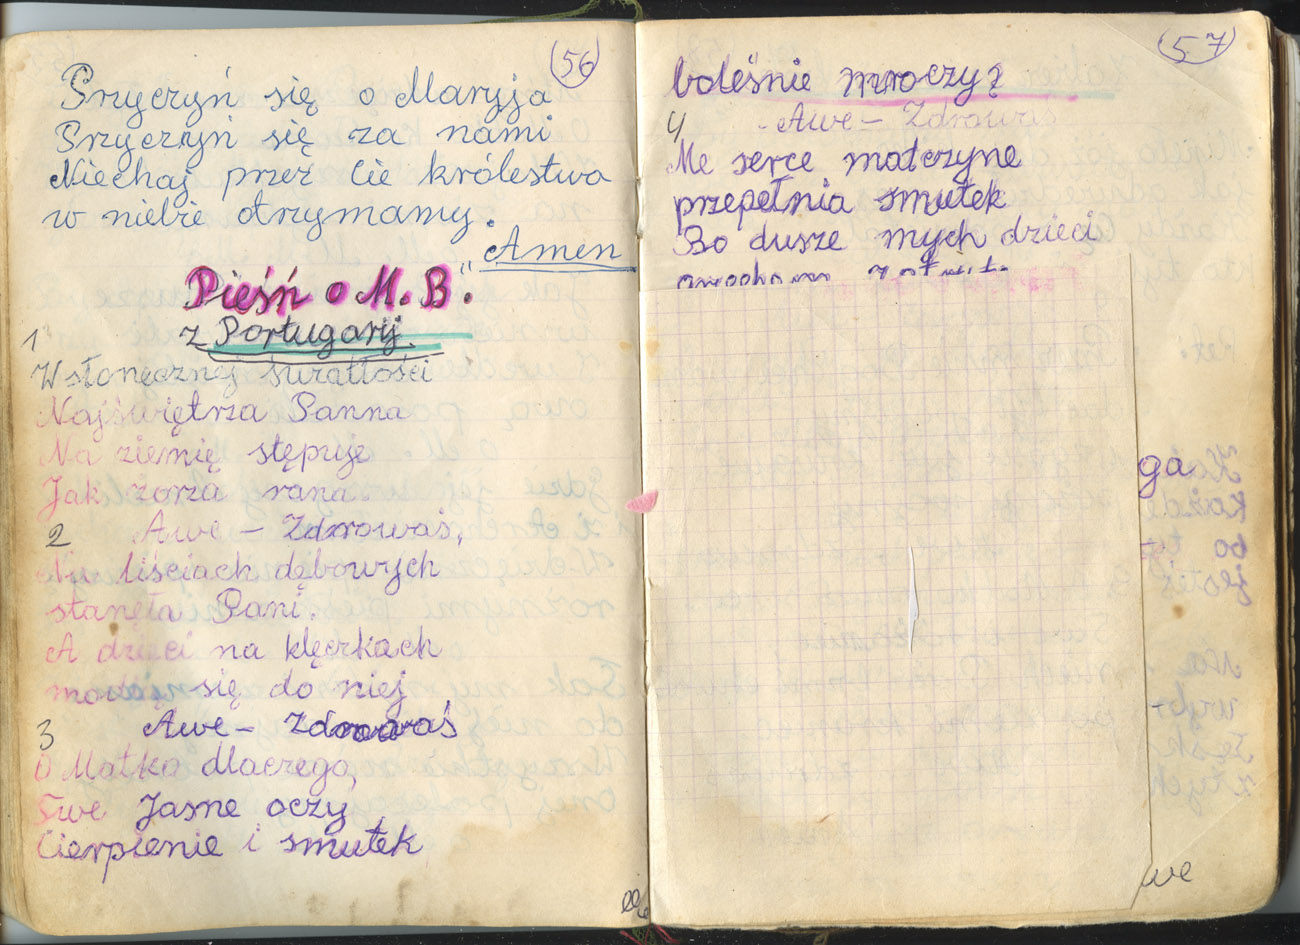 (56)
Przyczyń się o Maryja
Przyczyń się za nami
Niechaj przeź Cie królestwo
w niebie otrzymamy.
„Amen
Pieśń o M. B.
z Portugarij.
1
W słonecznej światłości
Najświętrza Panna
Na ziemię stępuje
Jak zorza rana.
Awe – Zdrowaś,
2
Na liściach dębowych
stanęła Pani.
A dzieci na klęczkach
modlą się do niej
Awe – Zdrowaś
3
O Matko dlaczego,
Twe Jasne oczy
Cierpienie i smutek
(57)
boleśnie mroczy?
- Awe – Zdrowaś
4
Me serce matczyne
przepełnia smutek
Bo dusze mych dzieci
ga
we